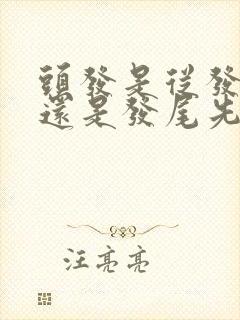 頭發是從發
還是發尾先
汪亮亮